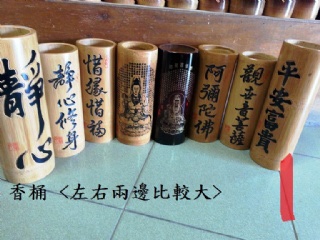 靜心
靜心修身
惜緣惜福
阿彌陀佛
觀世音菩薩
平安富貴
香桶 <左右兩邊比較大>